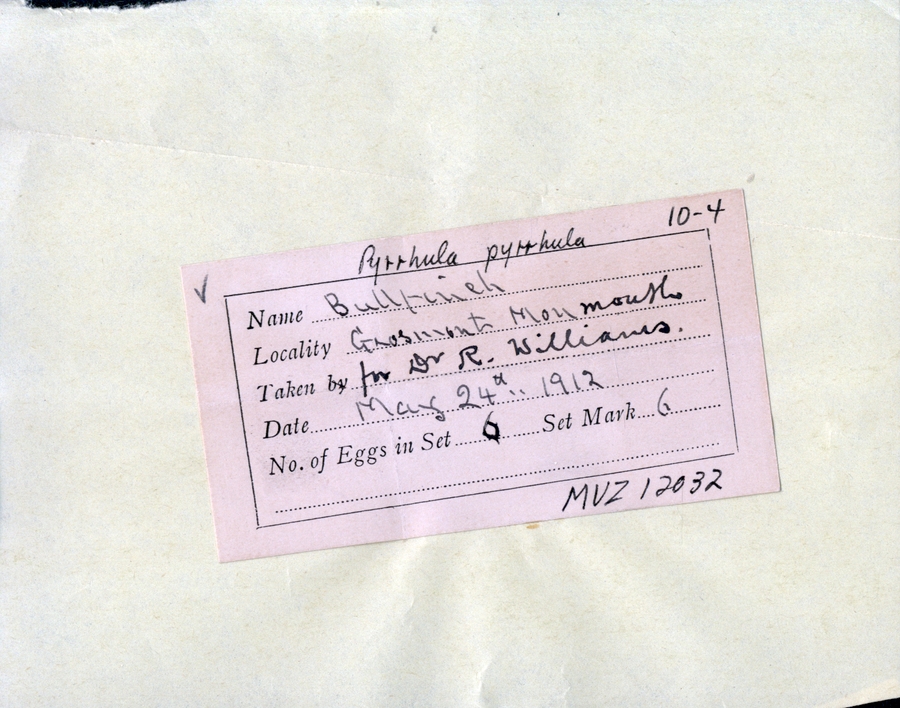 10-4
Pyrrhula pyrrhula
✓
Name Bullfinch
Locality Grosmont Monmouth
Taken by for Dr R. Williams.
Date May 24th 1912
No. of Eggs in Set 6 Set Mark 6
MVZ 12032